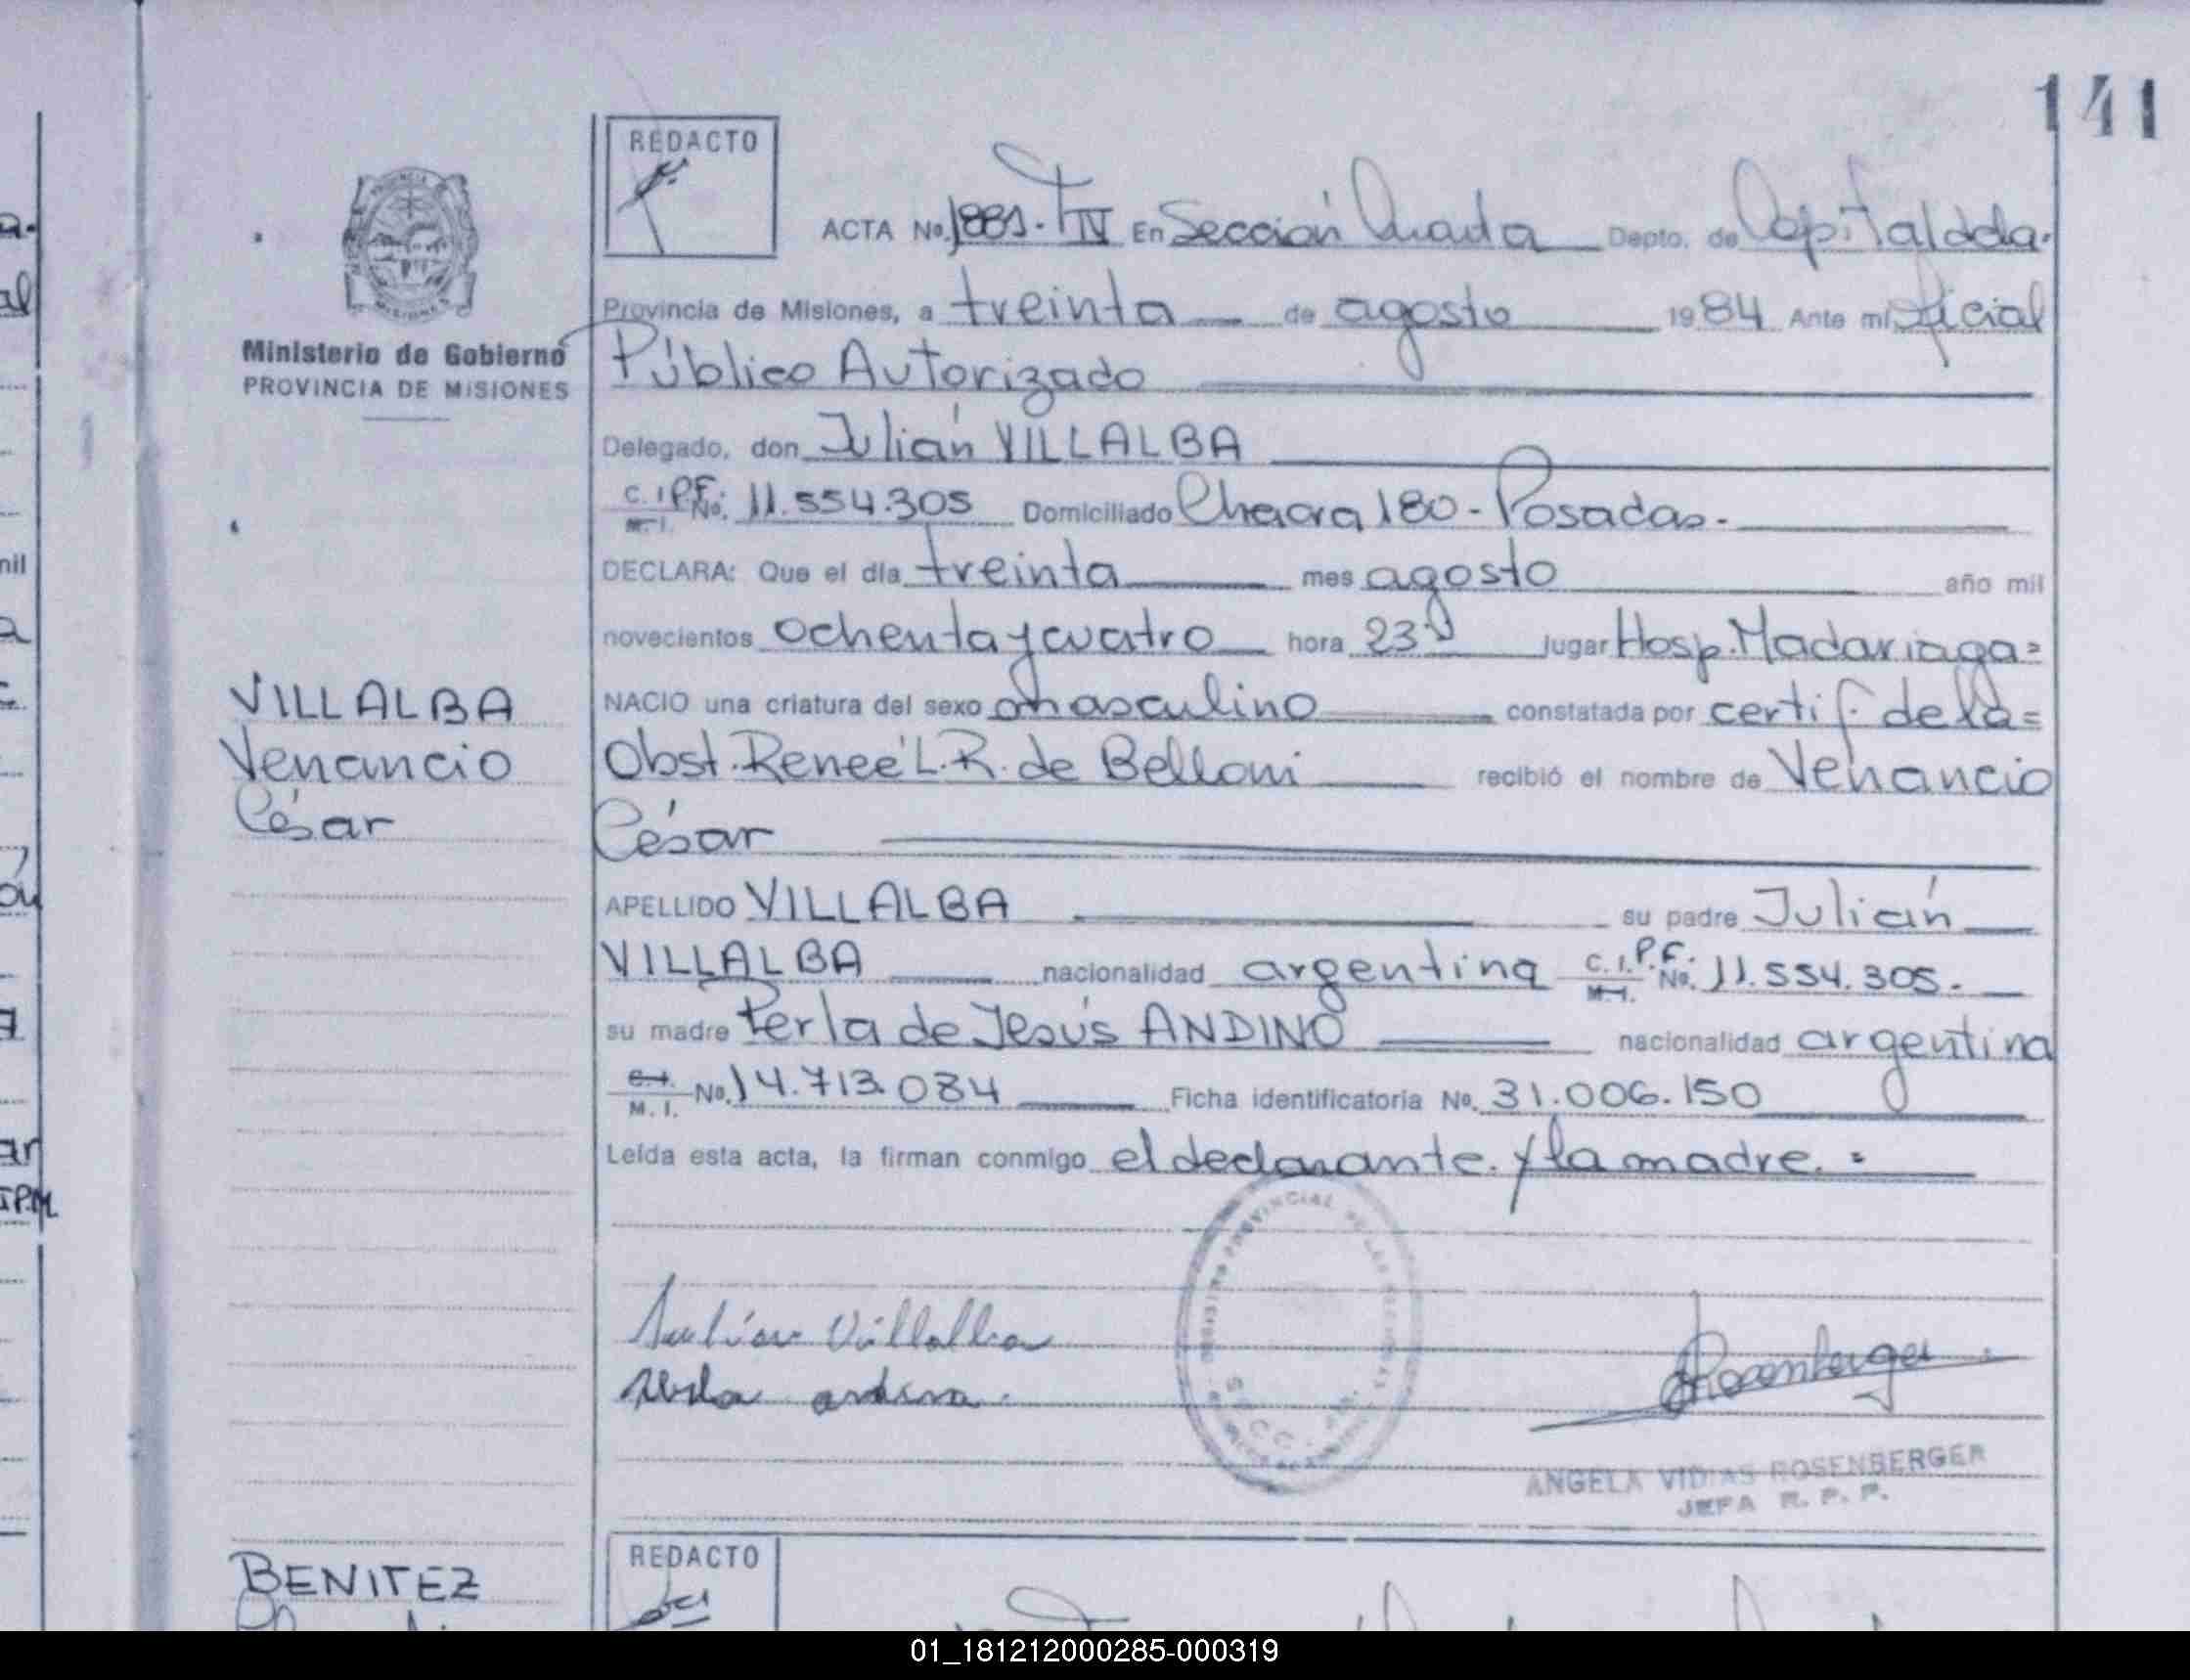 141
REDACTO
ACTA No. 1881. T IV En Sección Cuarta Depto. de Capital de la.
Provincia de Misiones, a treinta de agosto 1984 Ante mí, Oficial
Ministerio de Gobierno
PROVINCIA DE MISIONES
Público Autorizado
Delegado, don Julián VILLALBA
C. I. P.F. No. 11.554.305 Domiciliado Chacra 180 - Posadas.
M. I.
DECLARA: Que el día treinta mes agosto año mil
novecientos ochenta y cuatro hora 23 lugar Hosp. Madariaga=
VILLALBA
Venancio
César
NACIO una criatura del sexo masculino constatada por certif. de la=
Obst. Reneé L. R. de Belloni recibió el nombre de Venancio
César
APELLIDO VILLALBA su padre Julián
VILLALBA nacionalidad argentina C. I. P.F. No. 11.554.305.
M. I.
su madre Perla de Jesús ANDINO nacionalidad argentina
C. I.
M. I. No. 14.713.084 Ficha identificatoria No. 31.006.150
Leída esta acta, la firman conmigo el declarante. y la madre. =
Julián Villalba
Perla andino.
Rosenberger
SECC.
ANGELA ROSENBERGER
JEFA R. P. P.
BENITEZ
REDACTO
01_181212000285-000319